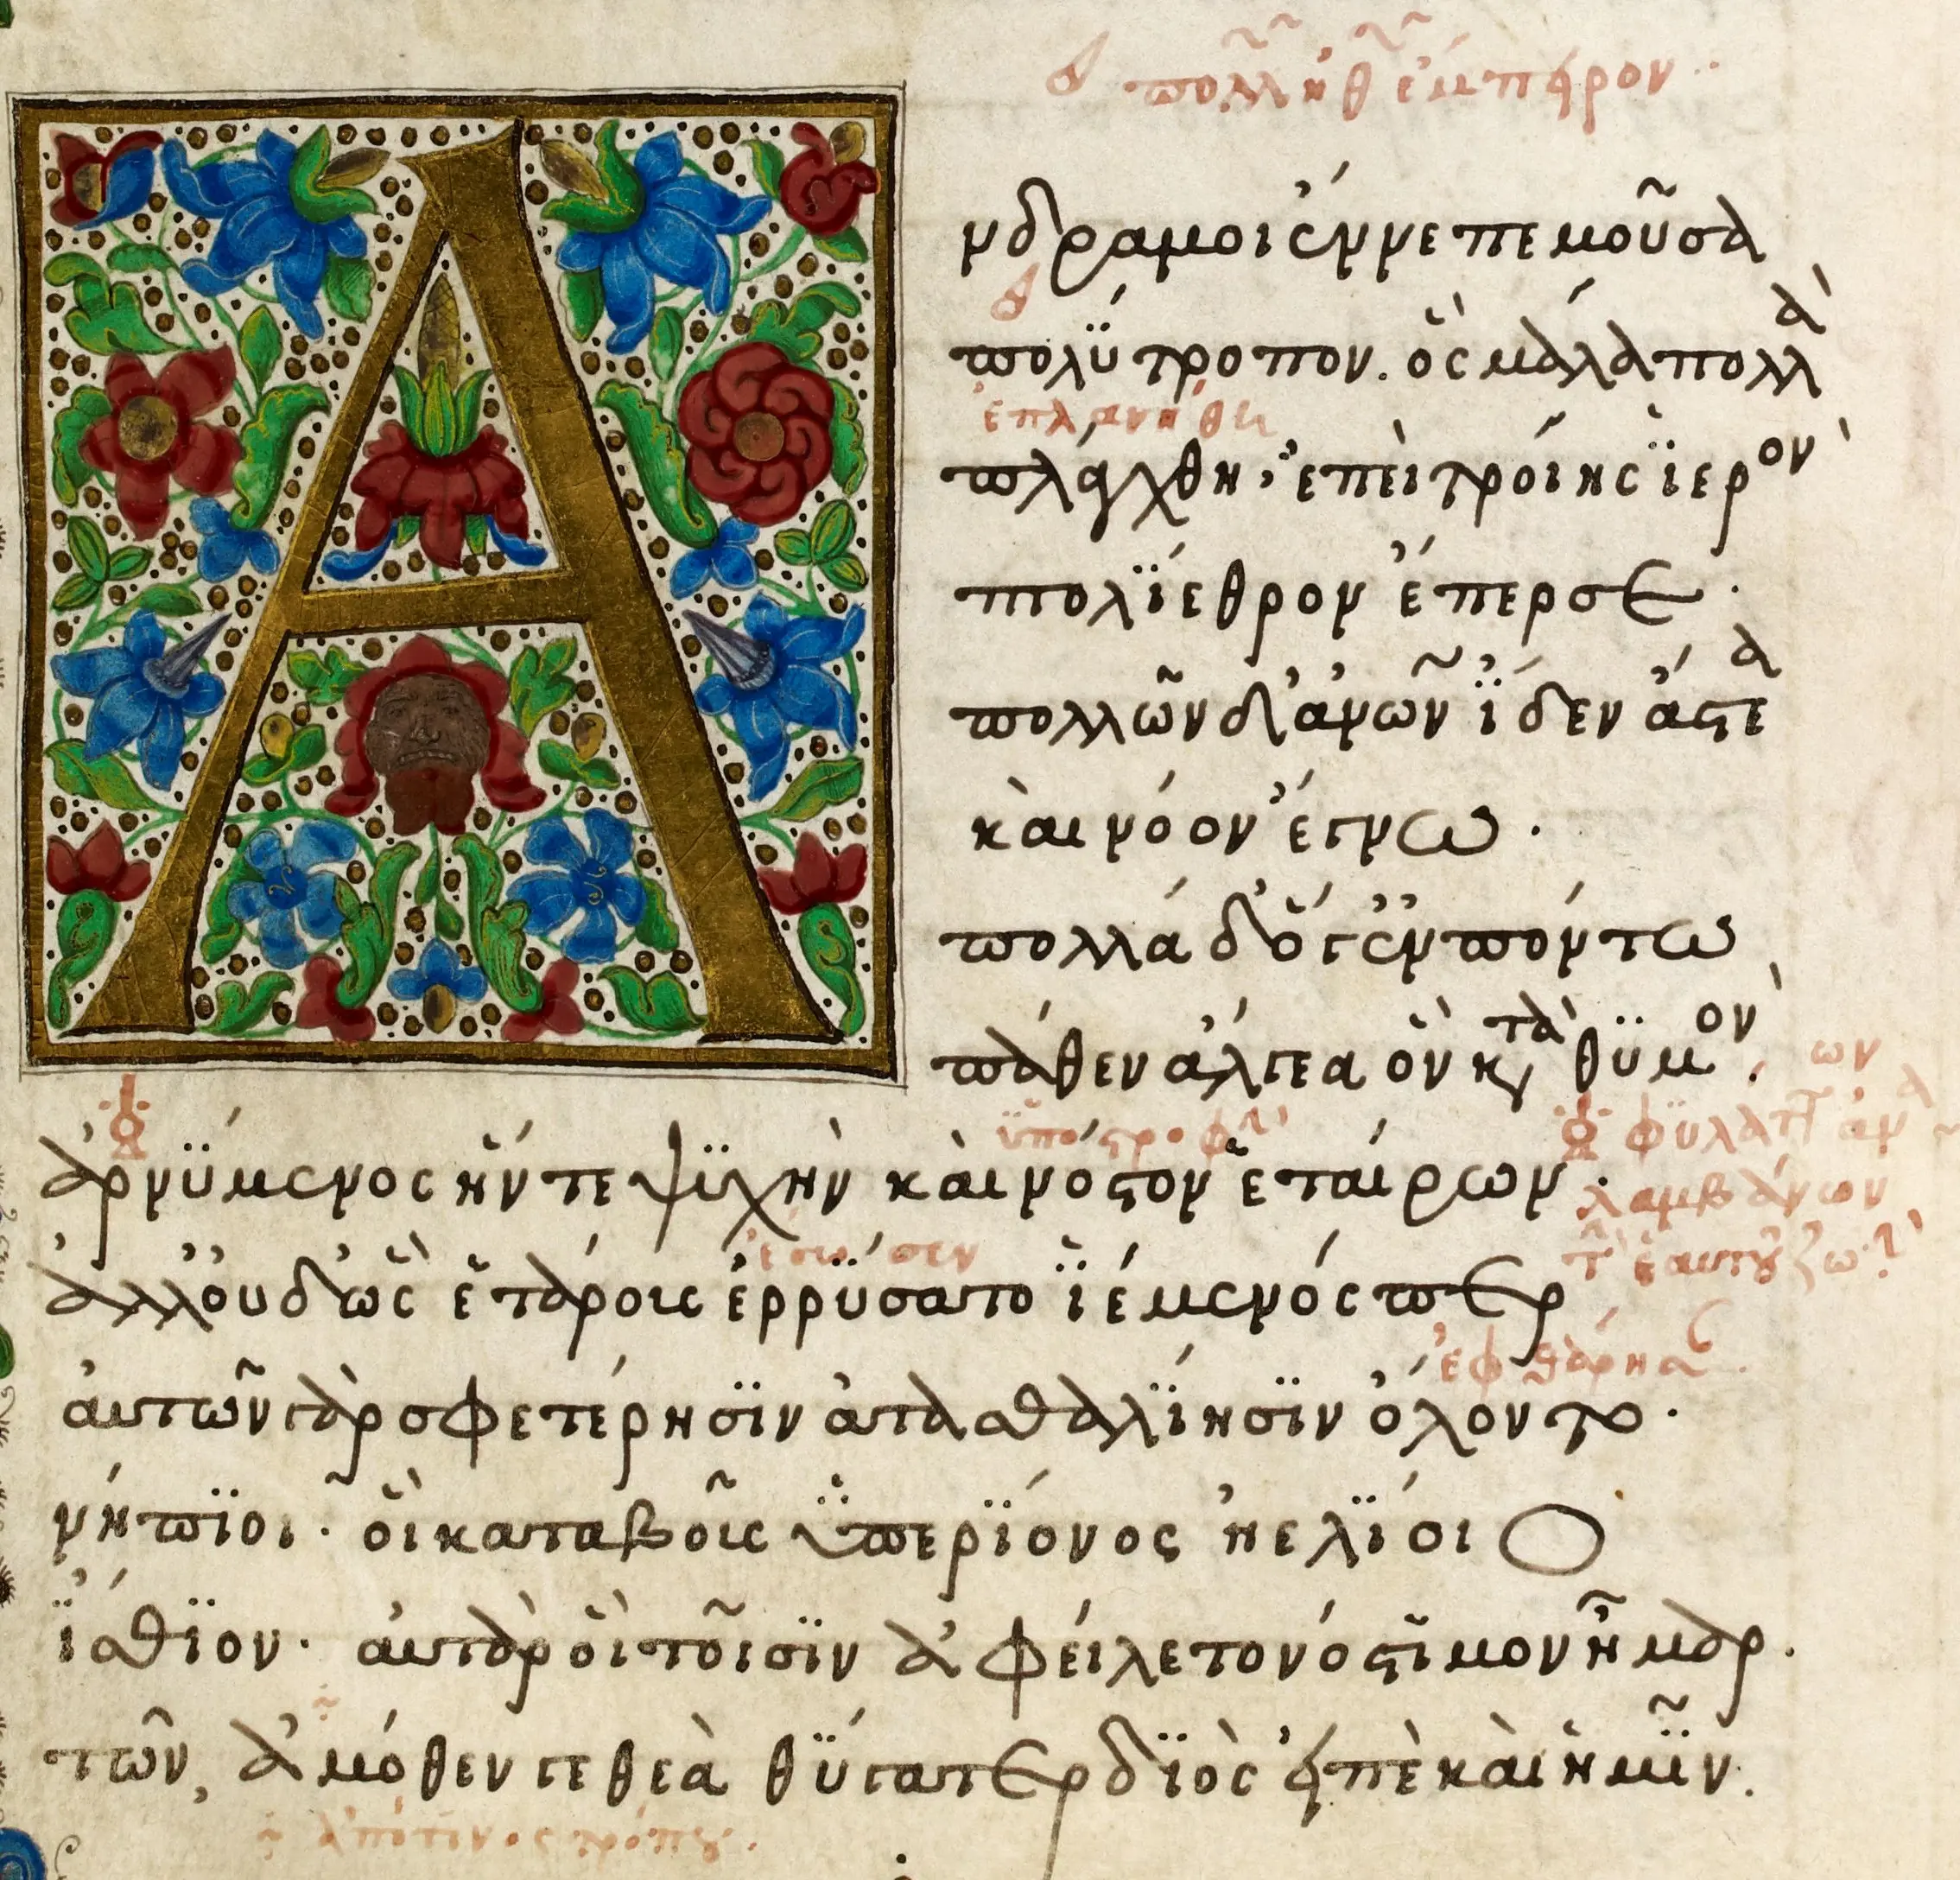 πολλῶν ἔμπειρον
Ἄνδρα μοι ἔννεπε μοῦσα
πολύτροπον. ὃς μάλα πολλὰ
ἐπλανήθη
πλάγχθη, ἐπεὶ τροίης ἱερὸν
πτολίεθρον ἔπερσε.
πολλῶν δ' ἀνθρώπων ἴδεν ἄστεα
καὶ νόον ἔγνω.
πολλὰ δ' ὅγ' ἐν πόντω
πάθεν ἄλγεα ὃν κατὰ θϋμὸν.
ἀρνΰμενος ἥν τε ψϋχὴν καὶ νόστον ἑταίρων.
λαμβάνων
ἔσωσεν
ἀλλ' οὐδ' ὧς ἑτάροις ἐρρΰσατο ἱέμενός περ
αὐτῶν γὰρ σφετέρησϊν ἀτασθαλΐησϊν ὄλοντο.
νήπϊοι. οἳ κατὰ βοῦς ὑπερΐονος ἠελΐοιο
ἤσθϊον. αὐτὰρ ὃ τοῖσϊν ἀφείλετο νόστϊμον ἦμαρ.
τῶν, ἁμόθεν γε θεὰ θΰγατερ δϊὸς εἰπὲ καὶ ἡμῖν.
ἀπό τινος τρόπου.